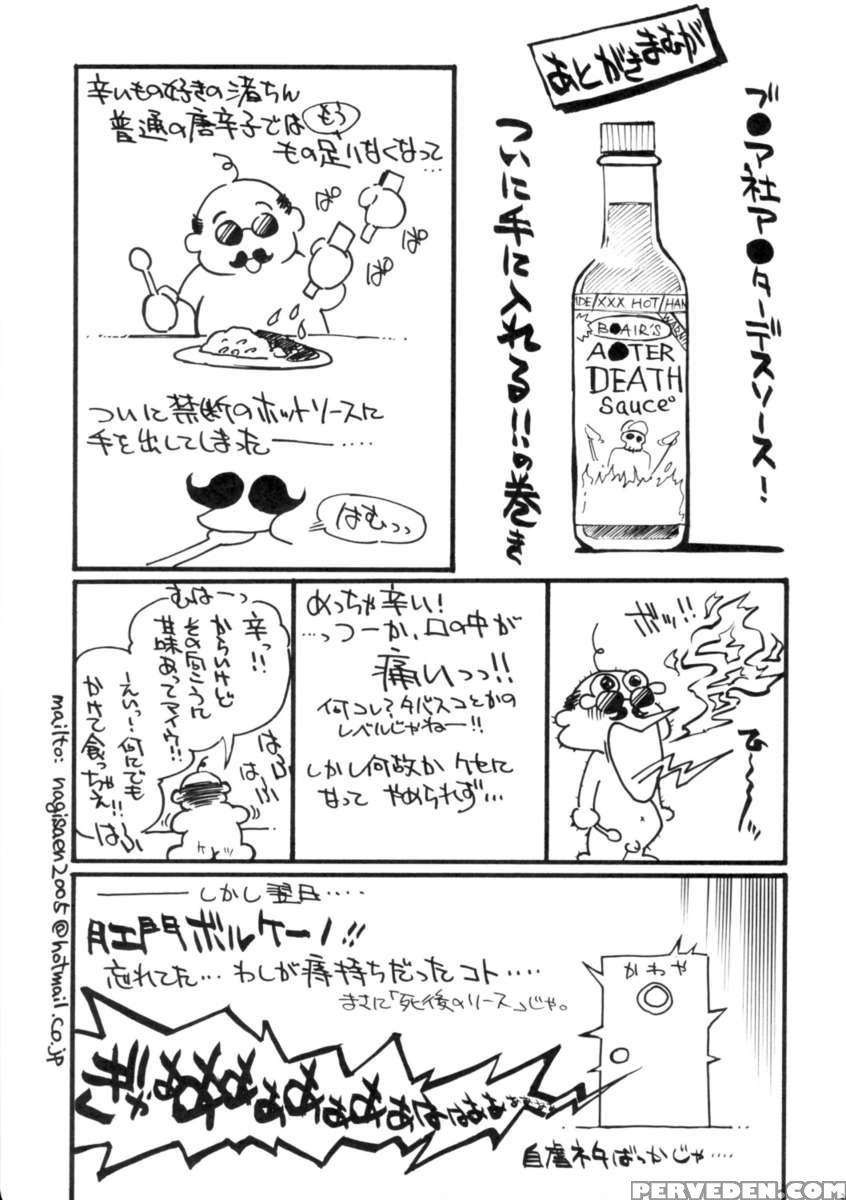 あとがきまむが
ブ●ア社ア●ターデスソース!
ついに手に入れる!!の巻き
ADE/XXX HOT/HAN
B●AIR'S
A●TER
DEATH
Sauce
辛いもの好きの渚ちん
普通の唐辛子ではもう
もの足りなくなって…
ぱっ
ぱっ
ぱっ
ついに禁断のホットソースに
手を出してしまった――‥‥
はむっっ
ひ〜〜〜っ
めっちゃ辛い!
…っつーか、口の中が
痛いっっ!!
何コレ?タバスコとかの
レベルじゃねー!!
しかし何故かケセに
なって やめられず…
むはーっ
辛っ!!
からいけど
その向こうに
甘味あってマイウ!!
はふ
はふ
ーえいっ!何にでも
かけて食っちゃえ!!
はふ
――しかし翌日‥‥
肛門ボルケーノ!!
忘れてた…わしが痔持ちだったコト‥‥
まさに「死後のソース」じゃ。
かわや
自虐ネタばっかじゃ‥‥
mailto: nagisaen2005@hotmail.co.jp
PERVEDEN.COM